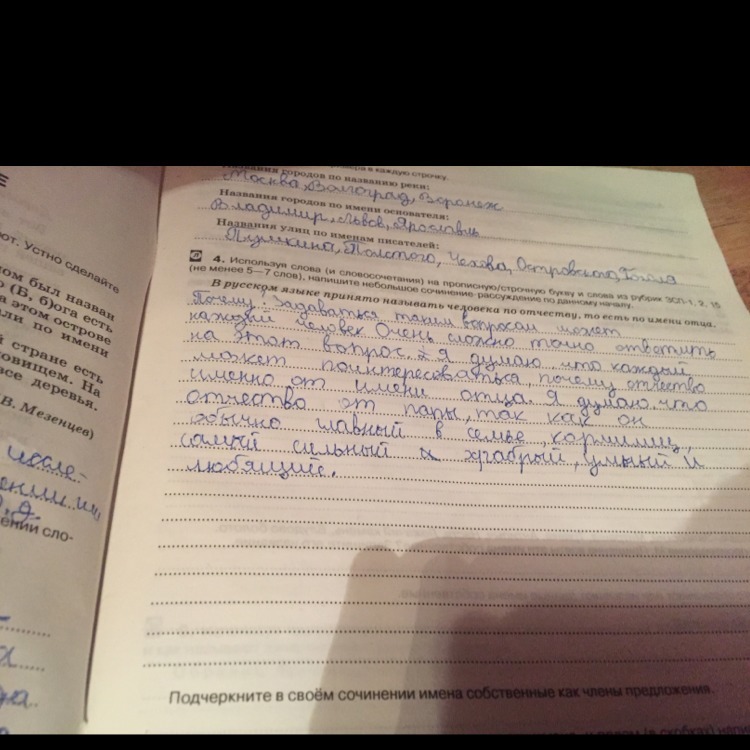 мера в каждую строчку.
Названия городов по названию реки:
Москва, Волгоград, Воронеж
Названия городов по имени основателя:
Владимир, Львов, Ярославль
Названия улиц по именам писателей:
Пушкина, Толстого, Чехова, Островского, Гоголя
4. Используя слова (и словосочетания) на прописную/строчную букву и слова из рубрик ЗСП-1, 2, 15
(не менее 5—7 слов), напишите небольшое сочинение-рассуждение по данному началу.
В русском языке принято называть человека по отчеству, то есть по имени отца.
Почему? Задаваться таким вопросом может
каждый человек. Очень сложно точно ответить
на этот вопрос. Я думаю, что каждый
может поинтересоваться, почему отчество
именно от имени отца. Я думаю, что
отчество от папы, так как он
обычно главный в семье, кормилец,
самый сильный и храбрый, умный и
любящие.
Подчеркните в своём сочинении имена собственные как члены предложения.
ют. Устно сделайте
ом был назван
о (Б, б)ога есть
а этом острове
или по имени
й стране есть
овищем. На
все деревья.
В. Мезенцев)
ении сло-